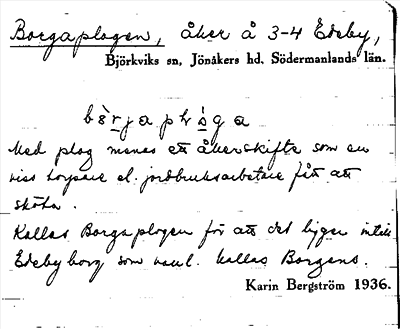 Borgaplogen, åker å 3-4 Edeby,
Björkviks sn, Jönåkers hd, Södermanlands län.
Med plog menas ett åkerskifte som en
viss torpare el. jordbruksarbetare fått att
sköta.
Kallas Borgaplogen för att det ligger intill
Edeby borg som vanl. kallas Borgens.
Karin Bergström 1936.